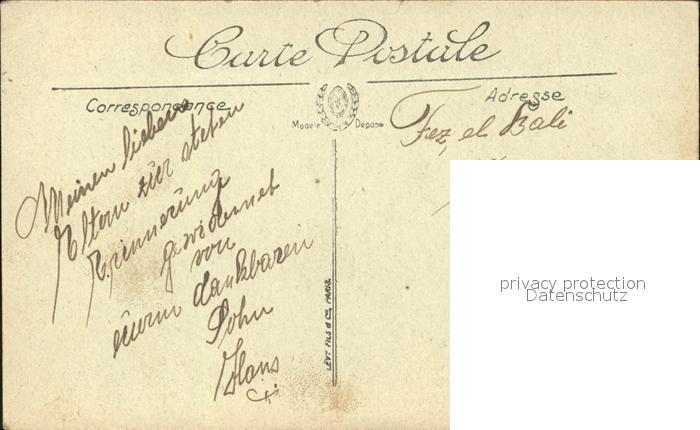 Carte Postale
Correspondance
Adresse
Modèle Déposé
Fez, el Bali
Meinen lieben
Eltern zur steten
Erinnerung
gewidmet
von
eurem dankbaren
Sohn
Hans
LÉVY FILS & Cie, PARIS
privacy protection
Datenschutz